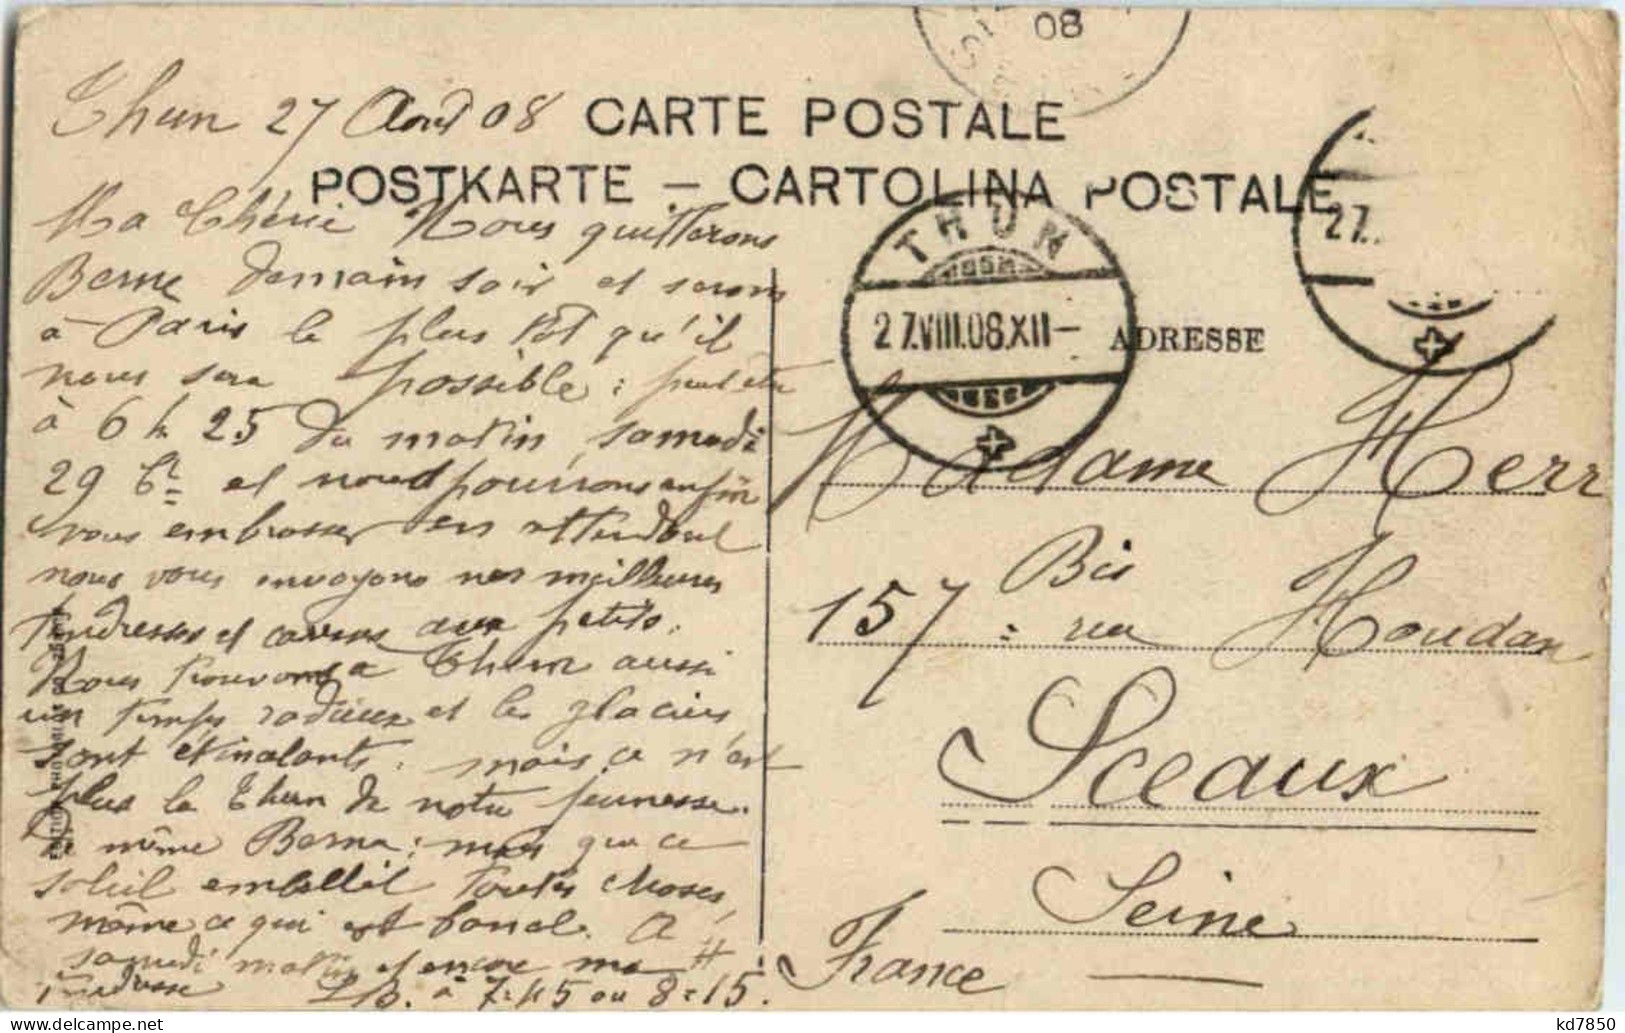 08
Thun 27 Août 08
CARTE POSTALE
POSTKARTE — CARTOLINA POSTALE
Ma Chérie Nous quitterons
Berne demain soir et serons
à Paris le plus tôt qu'il
nous sera possible : peut être
à 6 h 25 du matin, samedi
29 Ct et nous pourrons enfin
vous embrasser en attendant
nous vous envoyons nos meilleures
tendresses et aux petits.
Nous trouvons à Thun aussi
un temps radieux et les glaciers
sont étincelants. mais ce n'est
plus le Thun de notre jeunesse.
De même Berne ; mais que ce
soleil embellit toutes choses,
même ce qui est banal. A
samedi matin et encore ma
tendresse
L B. à 7:45 ou 8:15.
THUN
27.VIII.08.XII-
27.
ADRESSE
Madame Herr
157 Bis rue Houdan
Sceaux
Seine
France
kd7850